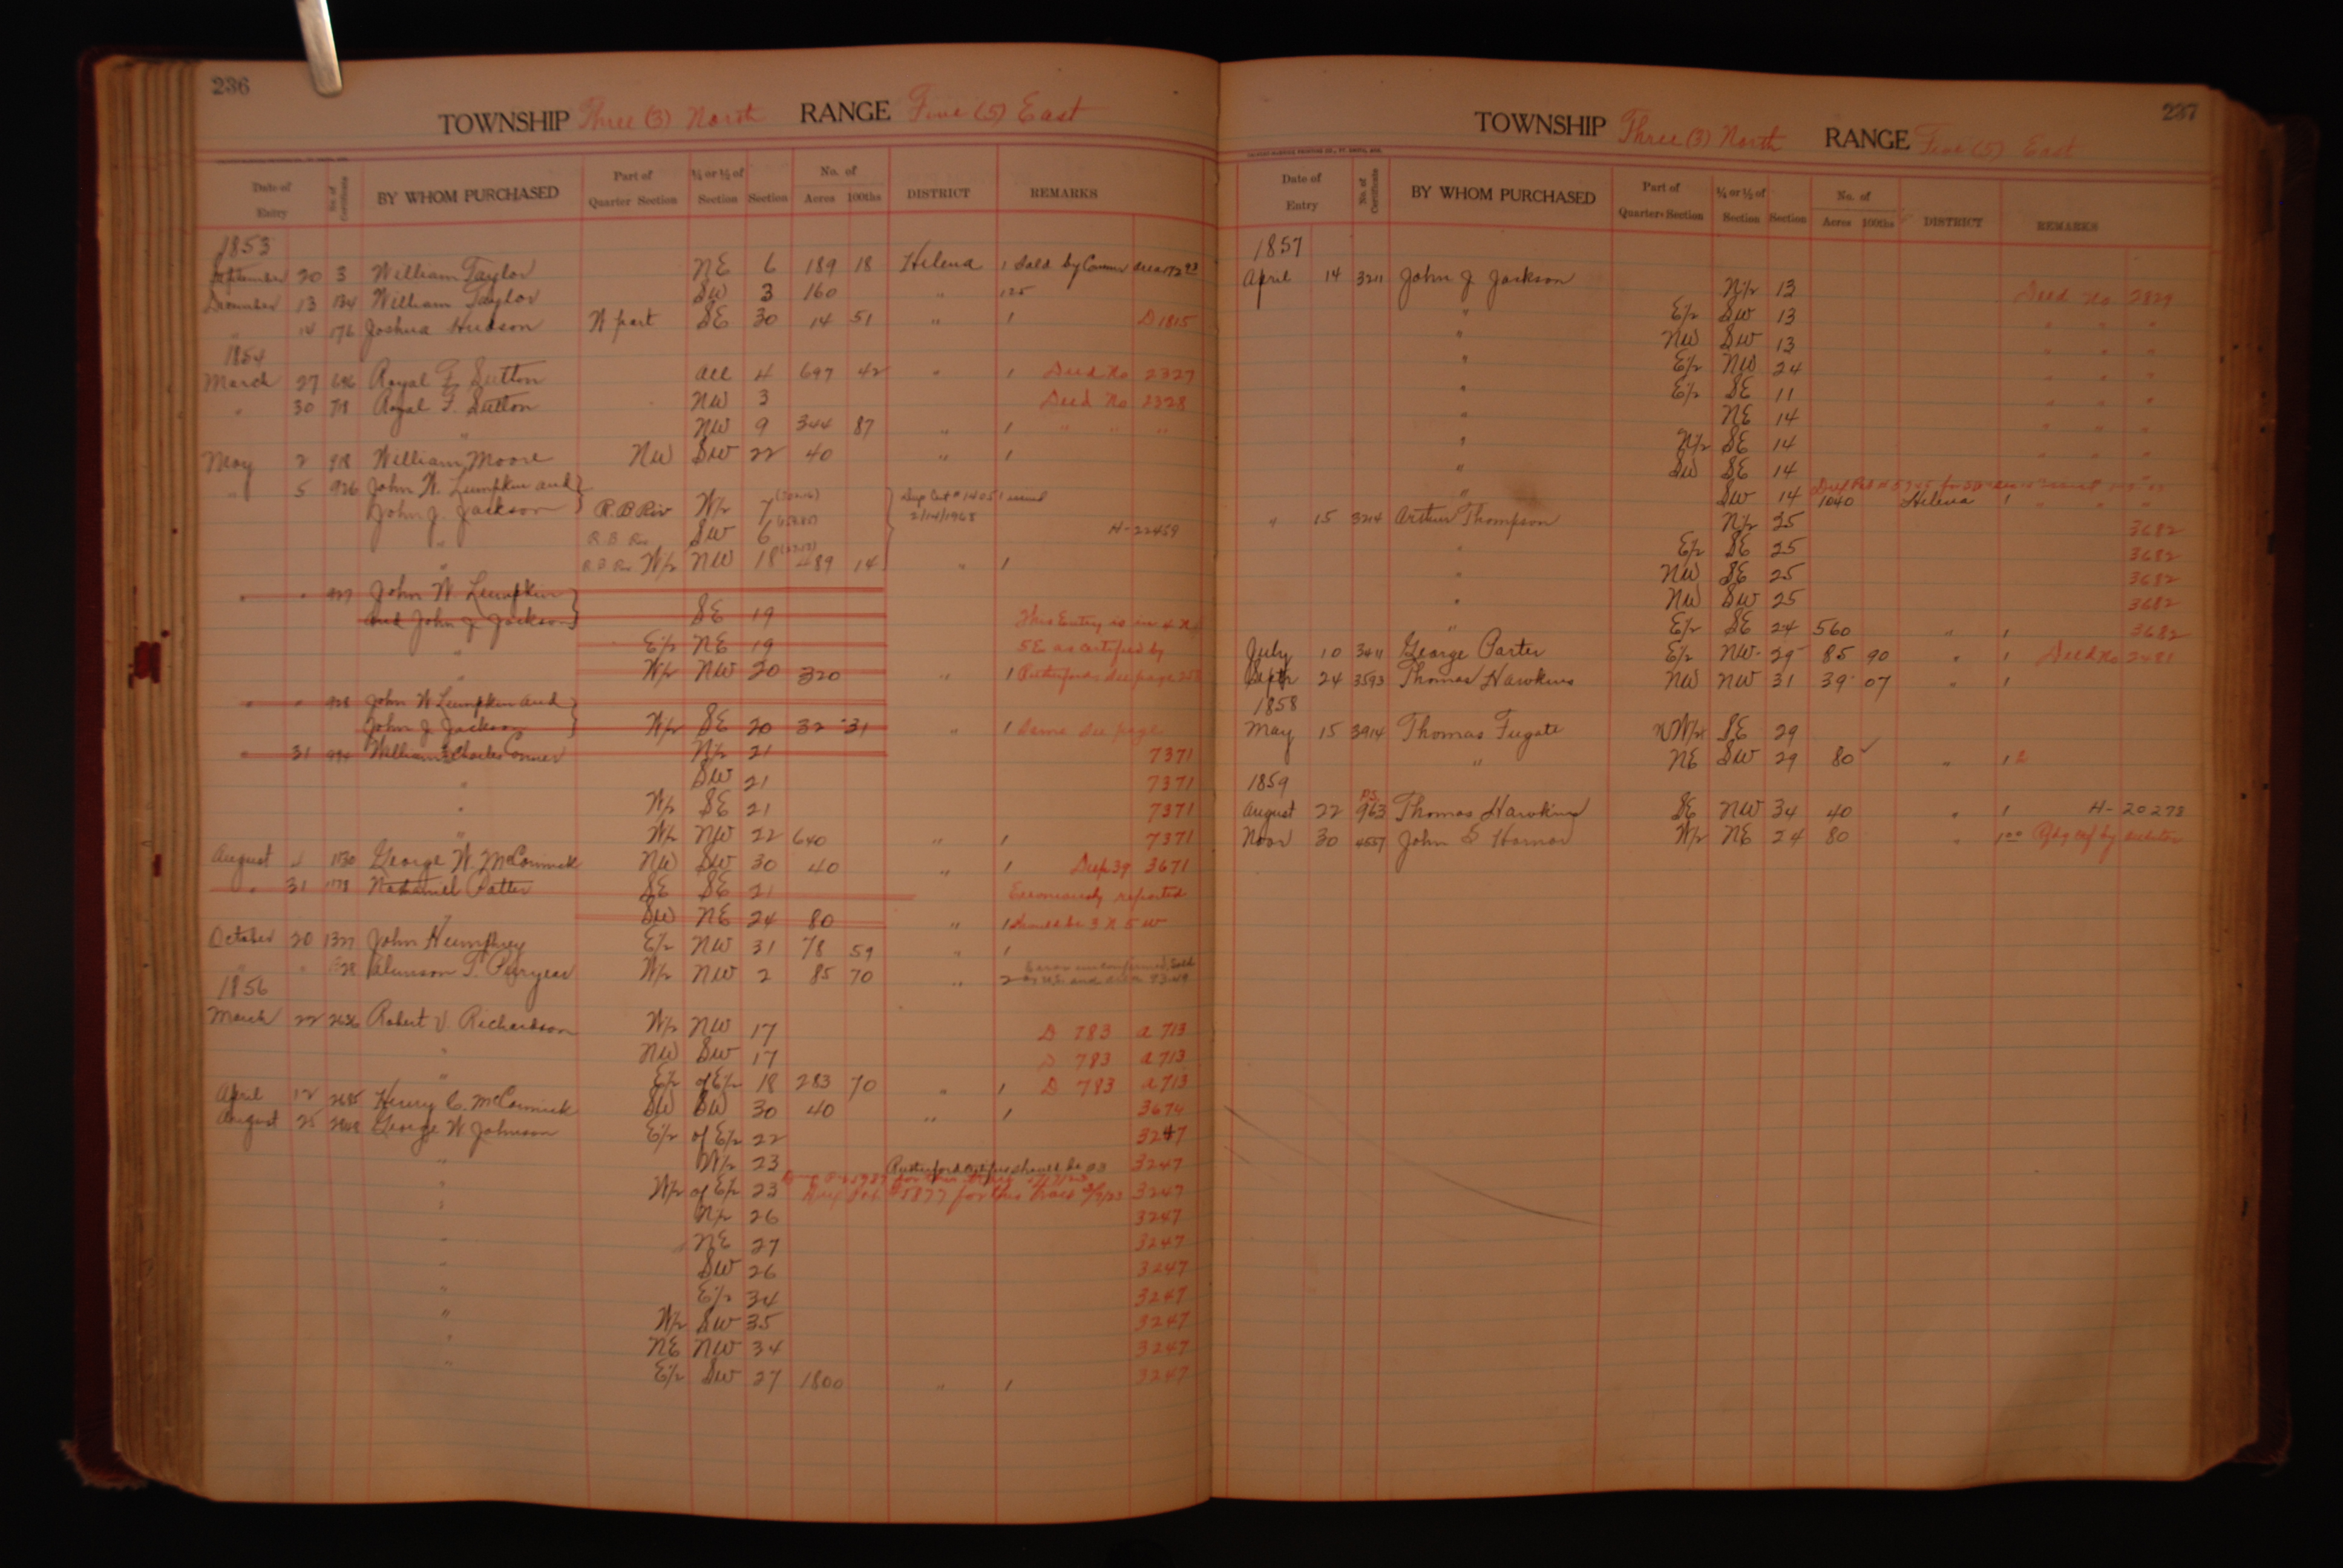 236
TOWNSHIP Three (3) North RANGE Five (5) East
Date of Entry No. of Certificate BY WHOM PURCHASED Part of Quarter Section ¼ or ½ of Section Section No. of Acres 100ths DISTRICT REMARKS
1853
September 20 3 William Taylor NE 6 189 18 Helena 1 Sold by
December 13 William Taylor SW 3 160 " 125
" 14 176 Joshua Hudson W part SE 30 14 51 " 1 D 1815
1854
March 27 696 Royal F. Sutton all 4 697 42 " 1 Deed No 2327
" 30 Royal F. Sutton NW 3 Deed No 2328
" NW 9 344 87 " 1 " " "
May 2 918 William Moore NW SW 22 40 " 1
" 5 926 John W. Lumpkin and
John J. Jackson R.B Riv W/2 7 Dup Cert # 1405 issued
" R B Riv SW 6 2/14/1968 H-22459
" R B Riv W/2 NW 18 489 14 " 1
" " 927 John W Lumpkin
and John J Jackson SE 19 This Entry is in 4 N
" E/2 NE 19 5E as certified by
" W/2 NW 20 320 " 1 Rutherford See page
" " 928 John W Lumpkin and
John J Jackson W/2 SE 20 32 31 " 1 Same See page
" 31 994 William & Charles Conner N/2 21 7371
" SW 21 7371
" W/2 SE 21 7371
" W/2 NW 22 640 " 1 7371
August 4 1130 George W. McCormick NW SW 30 40 " 1 Dup 39 3671
" 31 1178 Nathaniel Patter SE SE 21 Erroneously reported
SW NE 24 80 " 1 Should be 3 N 5 W
October 20 1327 John Humphrey E/2 NW 31 78 59 " 1
" " 1328 W/2 NW 2 85 70 " 2
1856
March 22 2636 Robert V. Richardson W/2 NW 17 D 783 a 713
" NW SW 17 D 783 a 713
" E/2 of E/2 18 283 70 " 1 D 783 a 713
April 12 2685 Henry C. McCormick SW SW 30 40 " 1 3674
August 25 George W Johnson E/2 of E/2 22 3247
" W/2 23 Rutherford certifies should be 3247
" W/2 of E/2 23 Dup Pat # 5877 for this tract 3247
" N/2 26 3247
" NE 27 3247
" SW 26 3247
" E/2 34 3247
" W/2 SW 35 3247
" NE NW 34 3247
" E/2 SW 27 1800 " 1 3247
237
TOWNSHIP Three (3) North RANGE Five (5) East
Date of Entry No. of Certificate BY WHOM PURCHASED Part of Quarter Section ¼ or ½ of Section Section No. of Acres 100ths DISTRICT REMARKS
1857
April 14 3211 John J Jackson N/2 13 Deed No 2829
" E/2 SW 13 " " "
" NW SW 13 " " "
" E/2 NW 24 " " "
" E/2 SE 11 " " "
" NE 14 " " "
" N/2 SE 14 " " "
" SW SE 14
" SW 14 1040 Helena 1 " " "
" 15 3214 Arthur Thompson N/2 25 3682
" E/2 SE 25 3682
" NW SE 25 3682
" NW SW 25 3682
" E/2 SE 24 560 " 1 3682
July 10 3411 George Carter E/2 NW 29 85 90 " 1 Deed No 2481
Sept 24 3593 Thomas Hawkins NW NW 31 39 07 " 1
1858
May 15 3914 Thomas Fugate W/2 SE 29
" NE SW 29 80 " 1
1859
August 22 P.S. 963 Thomas Hawkins SE NW 34 40 " 1 H-20273
Novr 30 4557 John S Hornor W/2 NE 24 80 " 1 00